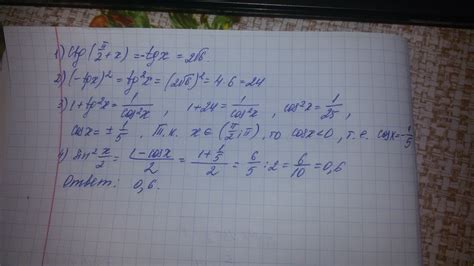 1) Ctg(π/2 + x) = -tg x = 2√6.
2) (-tgx)² = tg²x = (2√6)² = 4·6 = 24
3) 1 + tg²x = 1/cos²x, 1 + 24 = 1/cos²x, cos²x = 1/25,
cosx = ± 1/5, т.к. x ∈ (π/2; π), то cosx < 0, т.е. cosx = -1/5
4) sin² x/2 = (1 - cosx)/2 = (1 + 1/5)/2 = 6/5 : 2 = 6/10 = 0,6
Ответ: 0,6.